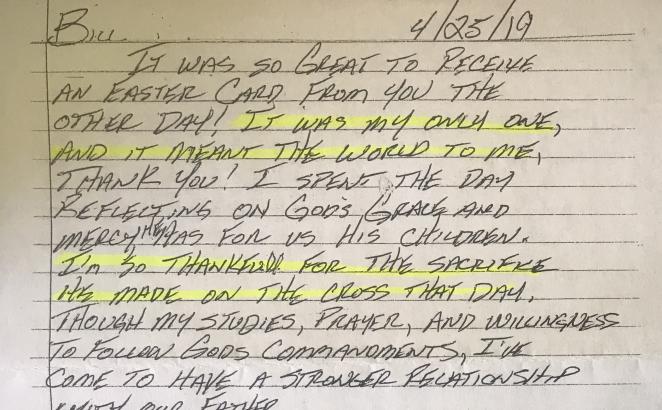 Bill. . .          4/25/19
IT WAS SO GREAT TO RECEIVE
AN EASTER CARD FROM YOU THE
OTHER DAY! IT WAS MY ONLY ONE,
AND IT MEANT THE WORLD TO ME,
THANK YOU! I SPENT THE DAY
REFLECTING ON GOD'S GRACE AND
MERCY HE HAS FOR US HIS CHILDREN.
I'M SO THANKFUL FOR THE SACRIFICE
HE MADE ON THE CROSS THAT DAY.
THOUGH MY STUDIES, PRAYER, AND WILLINGNESS
TO FOLLOW GODS COMMANDMENTS, I'VE
COME TO HAVE A STRONGER RELATIONSHIP
WITH OUR FATHER